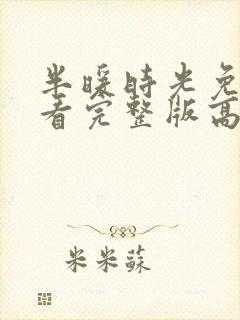 半暖時光免
看完整版高
米米蘇